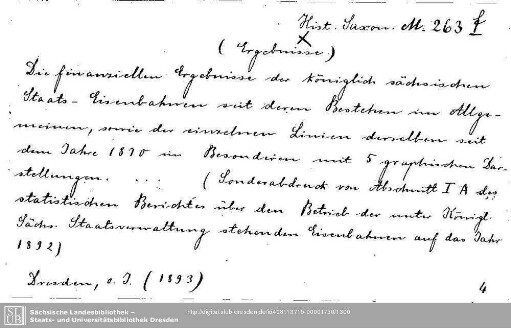 Hist. Saxon. M. 263 f
(Ergebnisse)
Die finanziellen Ergebnisse der königlich sächsischen
Staats-Eisenbahnen seit deren Bestehen im Allge-
meinen, sowie der einzelnen Linien derselben seit
dem Jahre 1870 im Besonderen mit 5 graphischen Dar-
stellungen. ... (Sonderabdruck von Abschnitt I A des
statistischen Berichtes über den Betrieb der unter Königl.
Sächs. Staatsverwaltung stehenden Eisenbahnen auf das Jahr
1892)
Dresden, o. J. (1893)
4
SLUB
Sächsische Landesbibliothek –
Staats- und Universitätsbibliothek Dresden